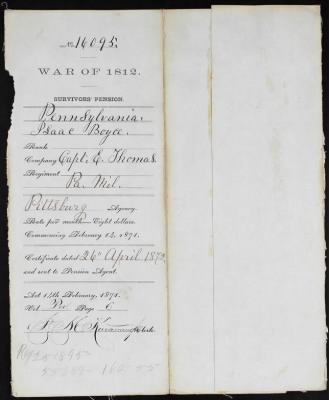 No. 16095.
WAR OF 1812.
SURVIVORS' PENSION.
Pennsylvania.
Isaac Boyce.
Rank
Company Capt. E. Thomas.
Regiment
Pa. Mil.
Pittsburg Agency.
Rate per month Eight dollars.
Commencing February 14, 1871.
Certificate dated 26" April 1872
and sent to Pension Agent.
Act 14th February, 1871.
Page 6
Clerk